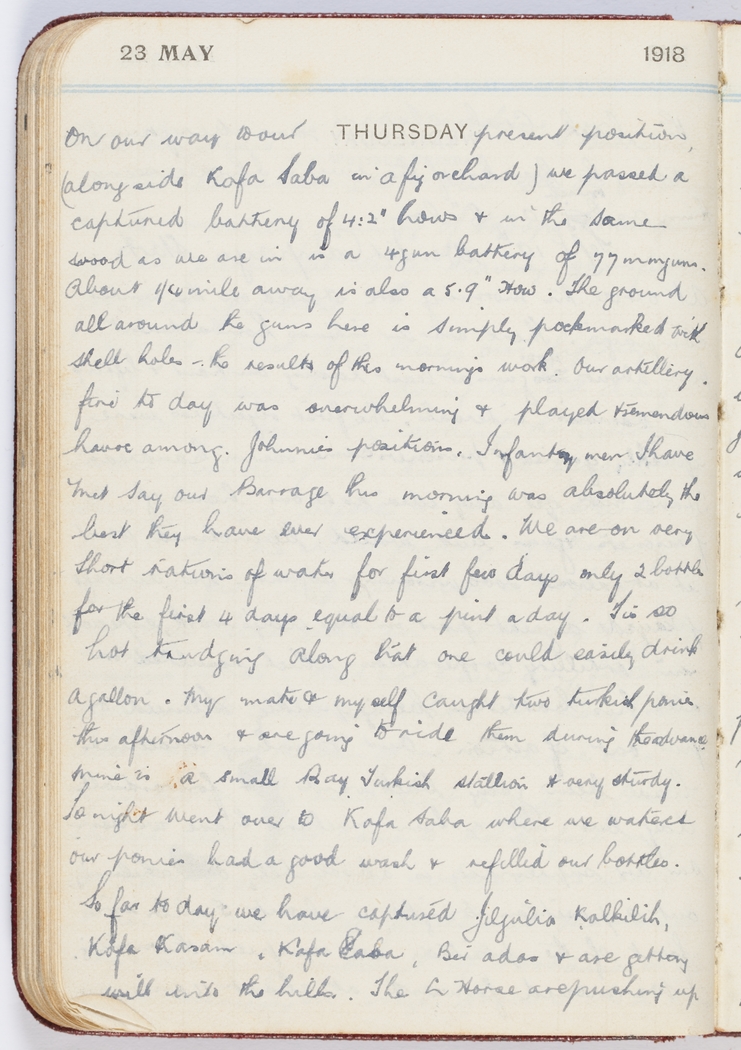 23 MAY 1918
THURSDAY
On our way to our present position,
(alongside Kafa Saba in a fig orchard) we passed a
captured battery of 4:2" hows & in the same
wood as we are in is a 4 gun battery of 77 mm guns.
About 1/4 mile away is also a 5.9" How. The ground
all around the guns here is simply pockmarked with
shell holes - the results of this mornings work. Our artillery
fire to day was overwhelming & played tremendous
havoc among Johnnies positions. Infantry men I have
met say our Barrage this morning was absolutely the
best they have ever experienced. We are on very
short rations of water for first few days only 2 bottles
for the first 4 days equal to a pint a day. Tis so
hot trudging along that one could easily drink
a gallon. My mate & myself caught two turkish ponies
this afternoon & are going to ride them during the advance
mine is a small Bay Turkish stallion & very sturdy.
To night went over to Kafa Saba where we watered
our ponies had a good wash & refilled our bottles.
So far to day we have captured Jilgulia Kalkilih,
Kafa Kasam, Kafa Saba, Bir adas & are getting
well into the hills. The L Horse are pushing up